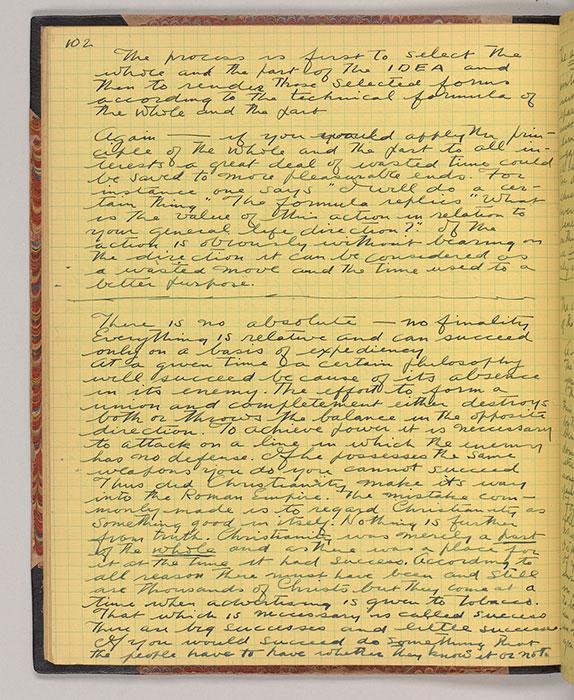 102
The process is first to select the
whole and the part of the IDEA and
then to render those selected forms
according to the technical formula of
the whole and the part
Again — if you would apply the prin-
ciple of the whole and the part to all in-
terests a great deal of wasted time could
be saved to more pleasurable ends. For
instance one says "I will do a cer-
tain thing" The formula replies "What
is the value of this action in relation to
your general life direction?" If the
action is obviously without bearing on
the direction it can be considered as
a wasted move and the time used to a
better purpose.
There is no absolute — no finality
Everything is relative and can succeed
only on a basis of expediency
At a given time a certain philosophy
will succeed because of its absence
in its enemy. The effort to form a
union and completement either destroys
both or throws the balance in the opposite
direction. To achieve power it is necessary
to attack on a line in which the enemy
has no defense. If he possesses the same
weapons you do you cannot succeed
Thus did Christianity make its way
into the Roman Empire. The mistake com-
monly made is to regard Christianity as
something good in itself. Nothing is further
from truth. Christianity was merely a part
of the whole and as there was a place for
it at the time it had success. According to
all reason there must have been and still
are thousands of Christs but they come at a
time when advertising is given to tobacco.
That which is necessary is called success
There are big successes and little success
If you would succeed do something that
the people have to have whether they know it or not.